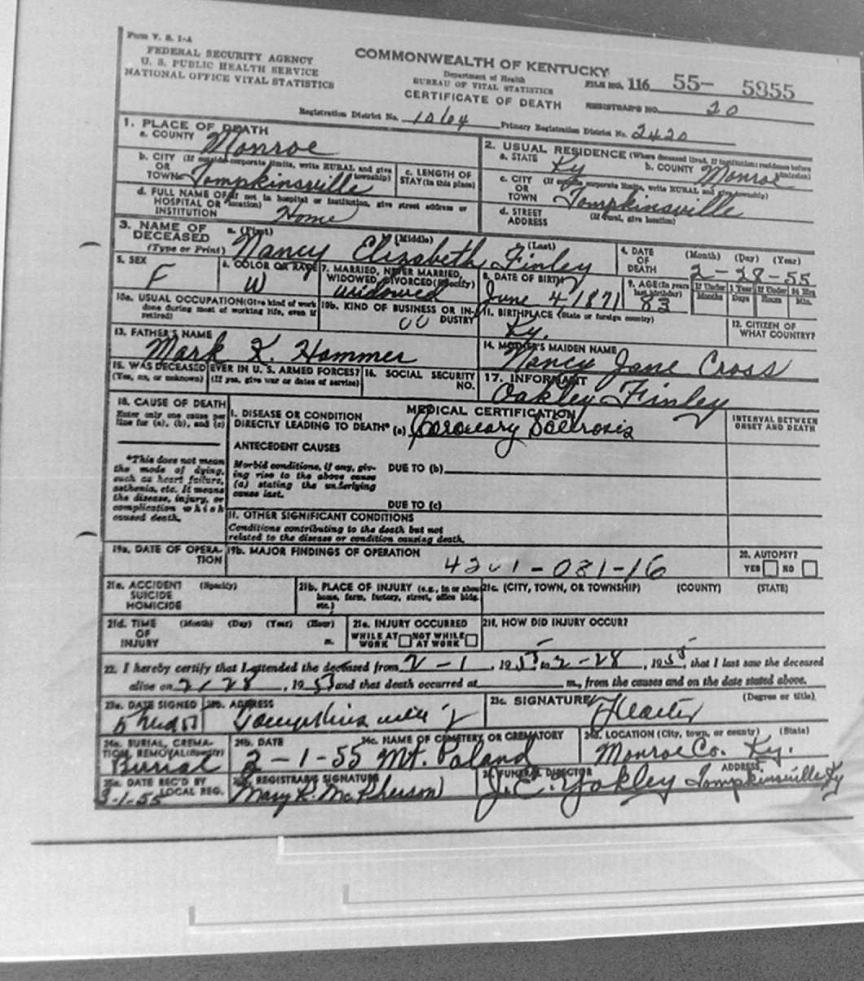 Form V. S. 1-A
FEDERAL SECURITY AGENCY
U. S. PUBLIC HEALTH SERVICE
NATIONAL OFFICE VITAL STATISTICS
COMMONWEALTH OF KENTUCKY
Department of Health
BUREAU OF VITAL STATISTICS
CERTIFICATE OF DEATH
FILE NO. 116 55- 5955
REGISTRAR'S NO. 20
Registration District No. 1064 Primary Registration District No. 2420
1. PLACE OF DEATH
a. COUNTY Monroe
2. USUAL RESIDENCE (Where deceased lived. If institution: residence before admission)
a. STATE Ky b. COUNTY Monroe
b. CITY (If outside corporate limits, write RURAL and give township)
OR TOWN Tompkinsville
c. LENGTH OF STAY (in this place)
c. CITY (If outside corporate limits, write RURAL and give township)
OR TOWN Tompkinsville
d. FULL NAME OF (If not in hospital or institution, give street address or location)
HOSPITAL OR INSTITUTION Home
d. STREET ADDRESS (If rural, give location)
3. NAME OF DECEASED (Type or Print)
a. (First) (Middle) (Last)
Nancy Elizabeth Finley
4. DATE OF DEATH (Month) (Day) (Year)
2-28-55
5. SEX F
6. COLOR OR RACE W
7. MARRIED, NEVER MARRIED, WIDOWED, DIVORCED (Specify) Widowed
8. DATE OF BIRTH June 4 1871
9. AGE (In years last birthday) 83
If Under 1 Year If Under 24 Hrs
Months Days Hours Min.
10a. USUAL OCCUPATION (Give kind of work done during most of working life, even if retired)
10b. KIND OF BUSINESS OR INDUSTRY
11. BIRTHPLACE (State or foreign country) Ky.
12. CITIZEN OF WHAT COUNTRY?
13. FATHER'S NAME
Mark K. Hammer
14. MOTHER'S MAIDEN NAME
Nancy Jane Cross
15. WAS DECEASED EVER IN U. S. ARMED FORCES?
(Yes, no, or unknown) (If yes, give war or dates of service)
16. SOCIAL SECURITY NO.
17. INFORMANT
Oakley Finley
18. CAUSE OF DEATH
Enter only one cause per line for (a), (b), and (c)
MEDICAL CERTIFICATION
INTERVAL BETWEEN ONSET AND DEATH
I. DISEASE OR CONDITION
DIRECTLY LEADING TO DEATH* (a) Coronary
*This does not mean the mode of dying, such as heart failure, asthenia, etc. It means the disease, injury, or complication which caused death.
ANTECEDENT CAUSES
Morbid conditions, if any, giving rise to the above cause (a) stating the underlying cause last.
DUE TO (b)
DUE TO (c)
II. OTHER SIGNIFICANT CONDITIONS
Conditions contributing to the death but not related to the disease or condition causing death.
19a. DATE OF OPERATION
19b. MAJOR FINDINGS OF OPERATION
4201-081-16
20. AUTOPSY?
YES NO
21a. ACCIDENT (Specify)
SUICIDE
HOMICIDE
21b. PLACE OF INJURY (e.g., in or about home, farm, factory, street, office bldg. etc.)
21c. (CITY, TOWN, OR TOWNSHIP) (COUNTY) (STATE)
21d. TIME OF INJURY (Month) (Day) (Year) (Hour) m.
21e. INJURY OCCURRED
WHILE AT WORK NOT WHILE AT WORK
21f. HOW DID INJURY OCCUR?
22. I hereby certify that I attended the deceased from 2-1, 1955, to 2-28, 1955, that I last saw the deceased
alive on 2/28, 1953 and that death occurred at m., from the causes and on the date stated above.
23a. DATE SIGNED
23b. ADDRESS
23c. SIGNATURE (Degree or title)
24a. BURIAL, CREMATION, REMOVAL (Specify)
Burial
24b. DATE
2-1-55
24c. NAME OF CEMETERY OR CREMATORY
Mt. Poland
24d. LOCATION (City, town, or county) (State)
Monroe Co. Ky.
25a. DATE REC'D BY LOCAL REG.
3-1-55
25b. REGISTRAR'S SIGNATURE
Mary R. McPherson
26. FUNERAL DIRECTOR ADDRESS
J. E. Yokley Tompkinsville Ky